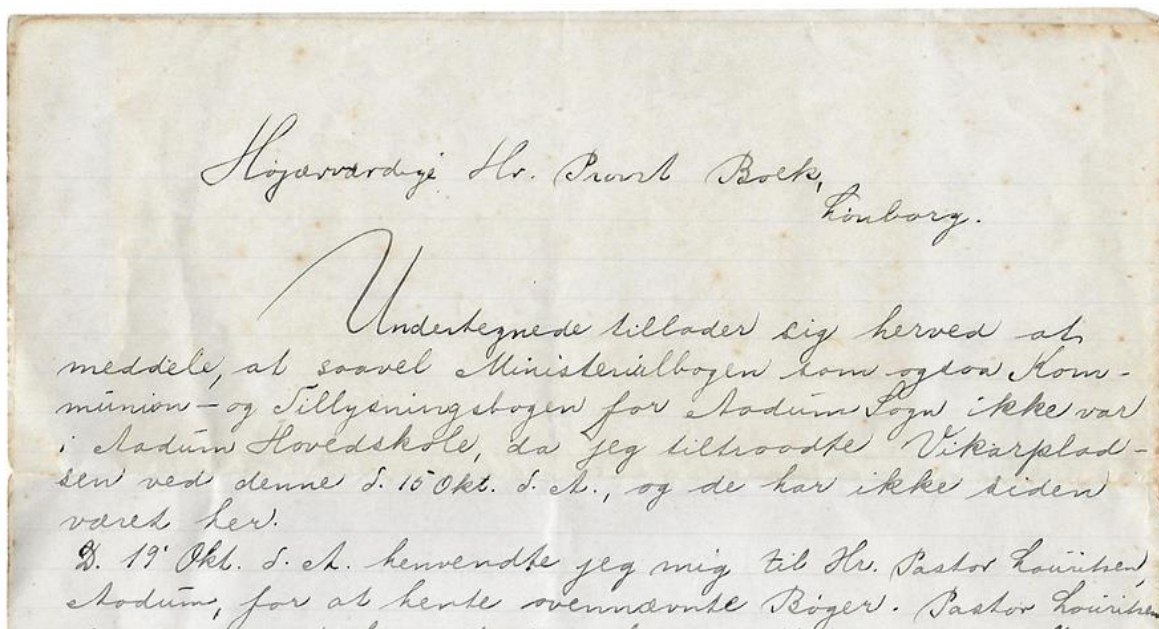 Højærværdige Hr. Provst Boek,
Lønborg.
Undertegnede tillader sig herved at
meddele, at saavel Ministerialbogen som ogsaa Kom-
munion- og Tillysningsbogen for Aadum Sogn ikke var
i Aadum Hovedskole, da jeg tiltraadte Vikarplad-
sen ved denne d. 15 Okt. d. A., og de har ikke siden
været her.
D. 19' Okt. d. A. henvendte jeg mig til Hr. Pastor Lauritsen,
Aadum, for at hente ovennævnte Bøger. Pastor Lauritsen